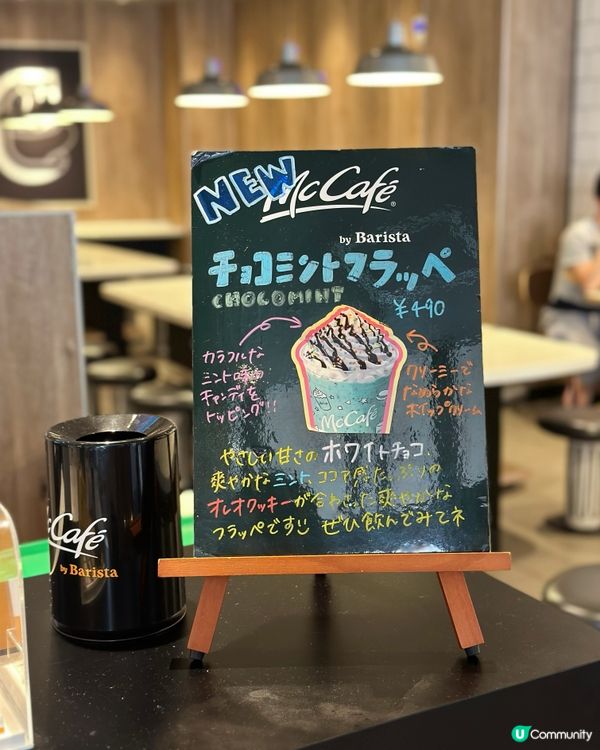 NEW
McCafé®
by Barista
チョコミントフラッペ
CHOCOMINT
¥490
カラフルな
ミント味の
キャンディを
トッピング!!
クリーミーで
なめらかな
ホイップクリーム
McCafé
やさしい甘さのホワイトチョコ、
爽やかなミント、ココア感たっぷりの
オレオクッキーが合わさった爽やかな
フラッペです!! ぜひ飲んでみてネ
Café
by Barista
U Community